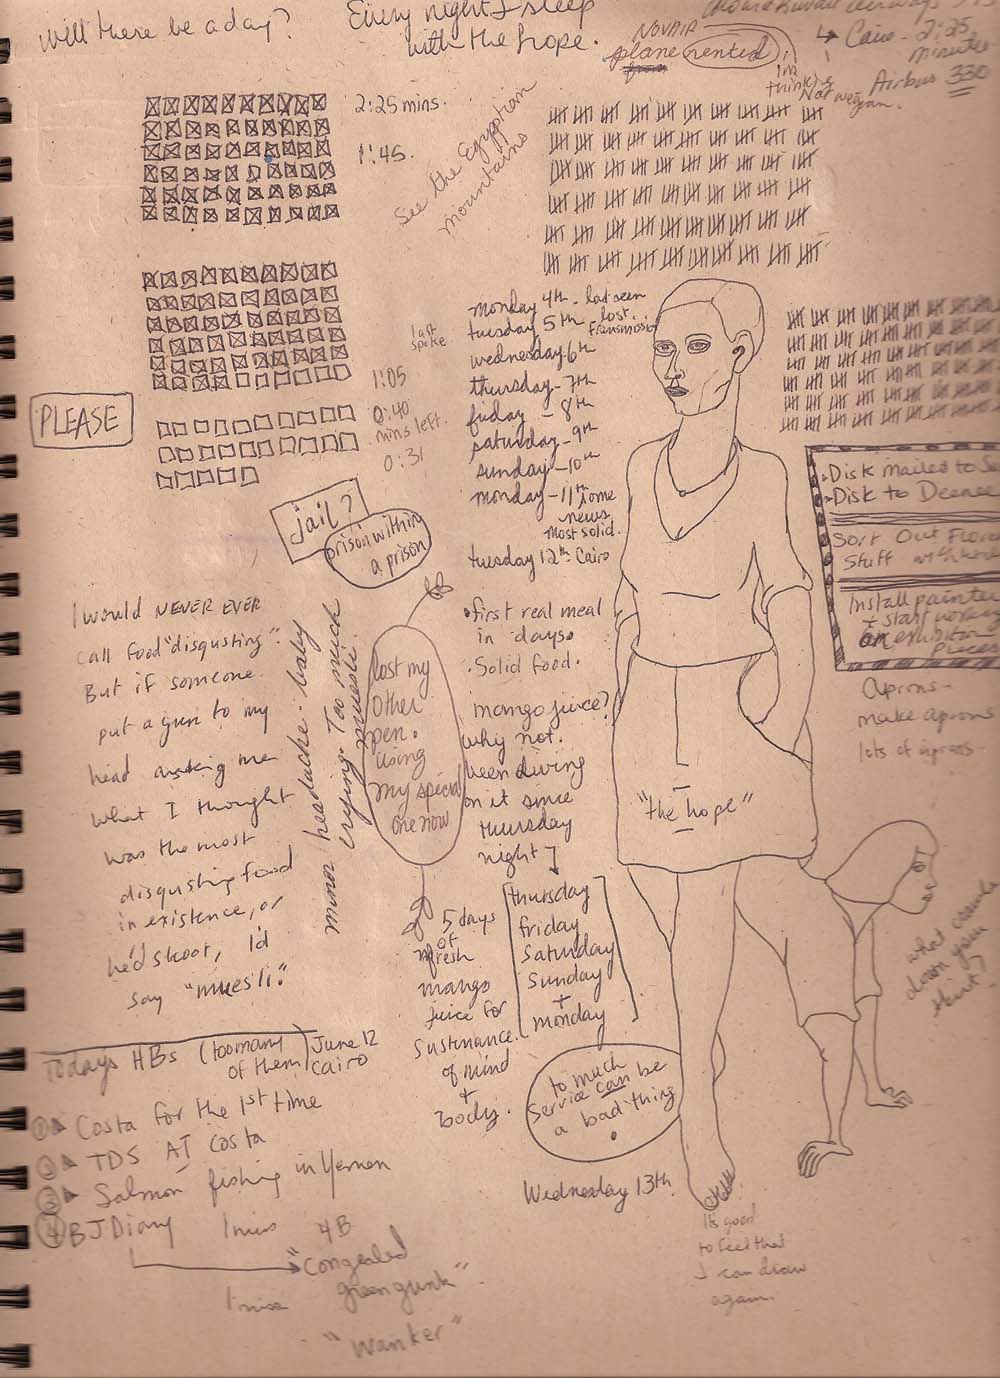 will there be a day?
Every night I sleep
with the hope.
NOVAIR
plane rented
I'm
thinking
Norwegian.
Cairo - 2:25
minutes
Airbus 330
2:25 mins.
1:45.
See the Egyptian
mountains
last
spoke
1:05
0:40
mins left.
0:31
PLEASE
monday 4th - last seen
tuesday 5th - lost
transmission
wednesday 6th
thursday - 7th
friday - 8th
saturday - 9th
sunday - 10th
monday - 11th some
news
most solid.
tuesday 12th: Cairo
jail?
prison within
a prison
Disk mailed to
Disk to Deenee
Sort Out
Stuff
Install painter
+ start working
on exhibition
pieces
Aprons -
make aprons
lots of aprons.
I would NEVER EVER
call food "disgusting".
But if someone
put a gun to my
head asking me
what I thought
was the most
disgusting food
in existence, or
he'd shoot, I'd
say "muesli."
minor headache - baby
crying. Too much
muesli.
lost my
other
pen.
using
my special
one now
first real meal
in days.
Solid food.
mango juice?
why not.
been living
on it since
thursday
night
thursday
friday
saturday
sunday
+
monday
5 days
of
fresh
mango
juice for
sustenance.
of mind
+
body.
"the hope"
what
down your
to much
service can be
a bad thing
Wednesday 13th.
It's good
to feel that
I can draw
again.
Today's HBs (too many
of them) June 12
Cairo
① Costa for the 1st time
② TDS AT Costa
③ Salmon fishing in Yemen
④ BJ Diary 1 mins 4B
"Congealed
green gunk".
"Wanker"